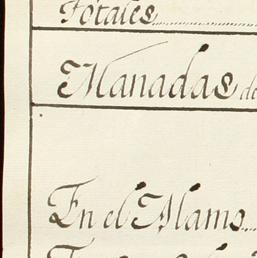 Totales
Manadas de
En el Alamo